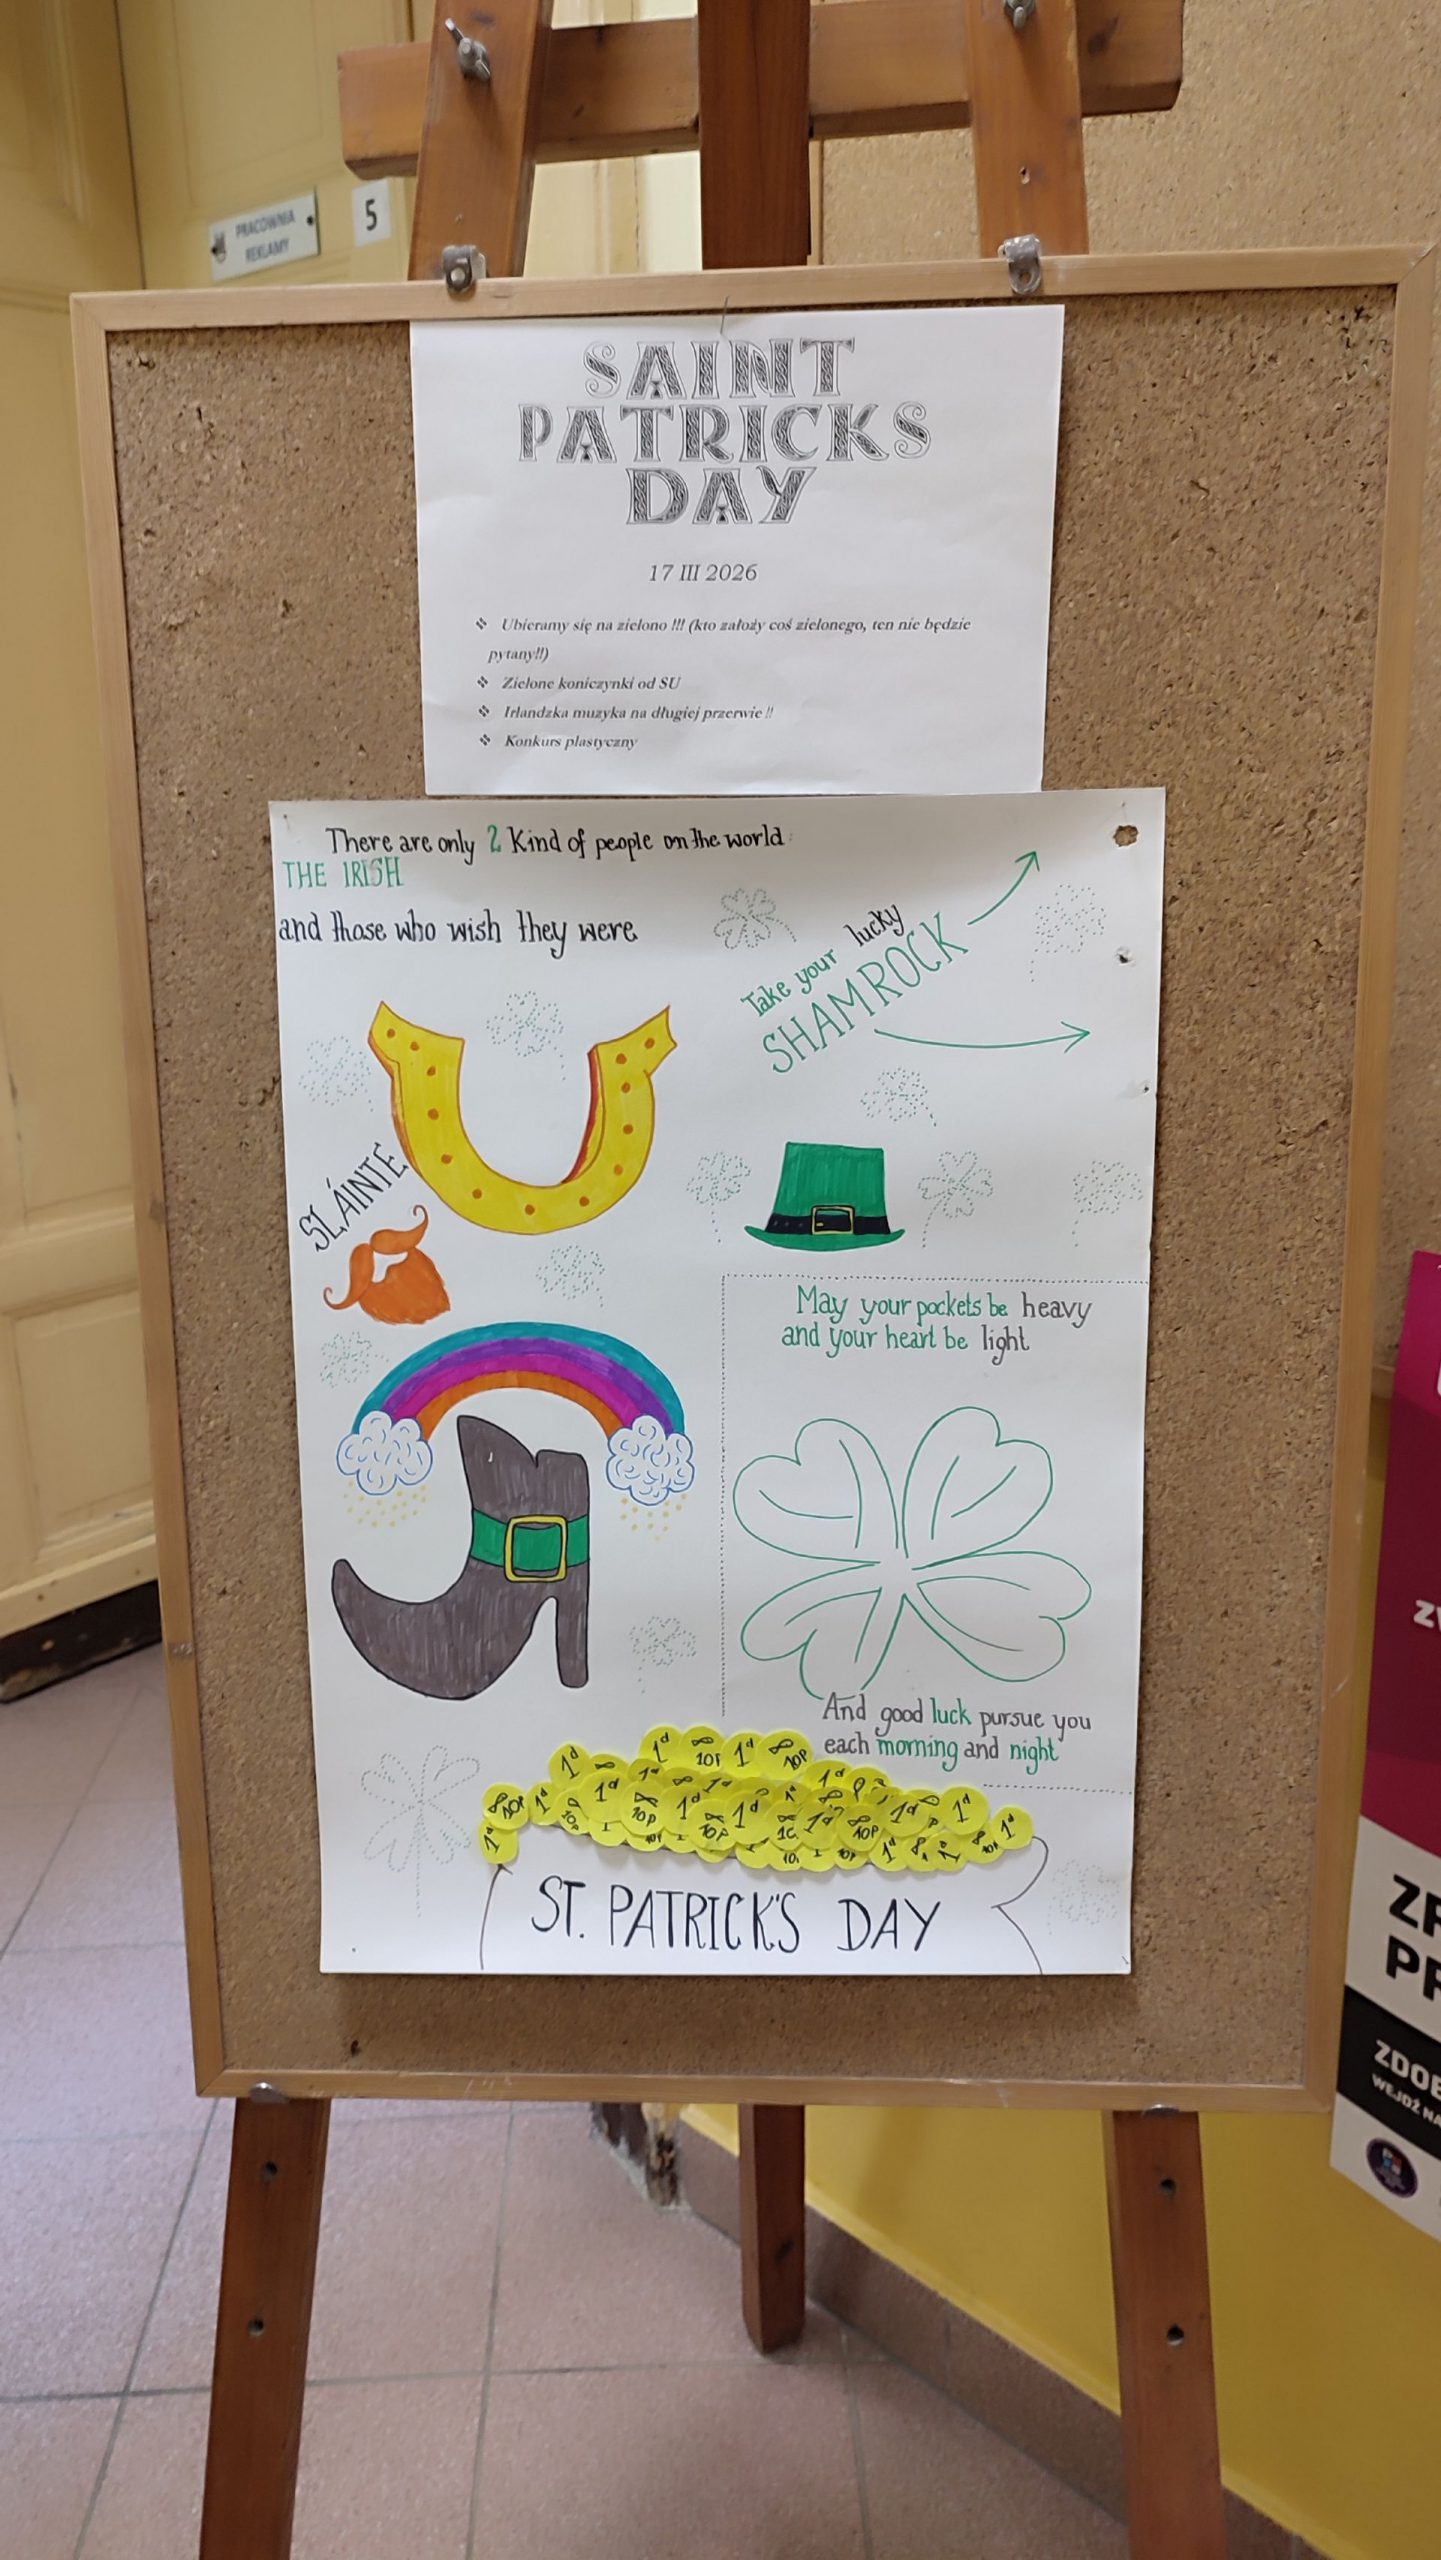 PRACOWNIA
REKLAMY
5
SAINT
PATRICKS
DAY
17 III 2026
❖ Ubieramy się na zielono !!! (kto założy coś zielonego, ten nie będzie
pytany!!)
❖ Zielone koniczynki od SU
❖ Irlandzka muzyka na długiej przerwie !!
❖ Konkurs plastyczny
There are only 2 Kind of people on the world:
THE IRISH
and those who wish they were
Take your lucky
SHAMROCK
SLÁINTE
May your pockets be heavy
and your heart be light
And good luck pursue you
each morning and night
ST. PATRICK'S DAY
ZDOB
WEJDŹ NA